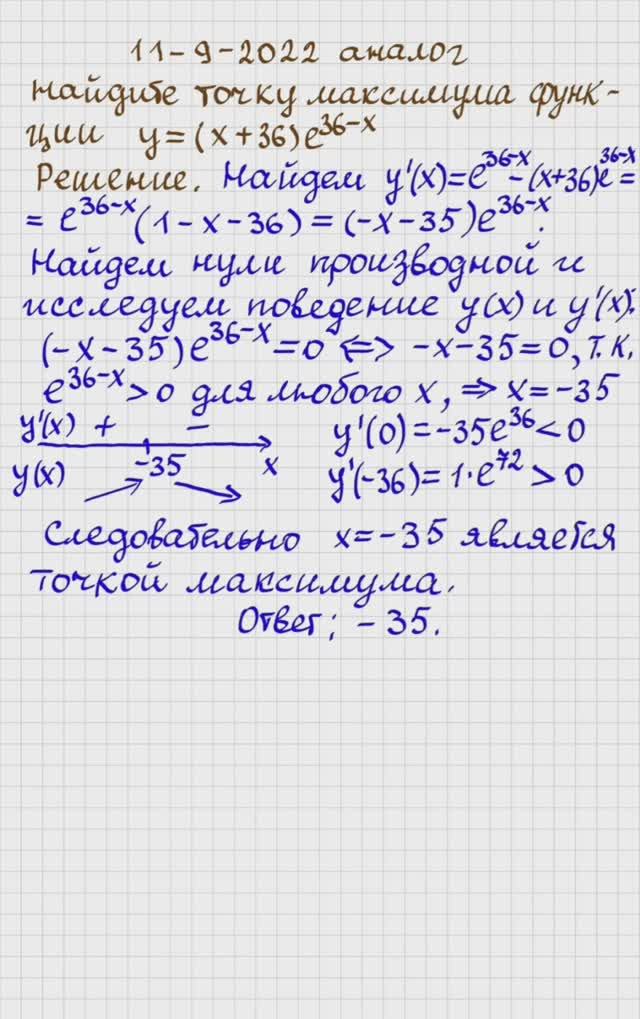 11-9-2022 аналог
Найдите точку максимума функ-
ции y=(x+36)e^36-x
Решение. Найдем y'(x)=e^36-x-(x+36)e^36-x=
= e^36-x(1-x-36)=(-x-35)e^36-x.
Найдем нули производной и
исследуем поведение y(x) и y'(x):
(-x-35)e^36-x=0 <=> -x-35=0, т.к.
e^36-x>0 для любого x, => x=-35
y'(x) + - y'(0)=-35e^36<0
y(x) -35 x y'(-36)=1·e^72>0
Следовательно x=-35 является
точкой максимума.
Ответ: -35.